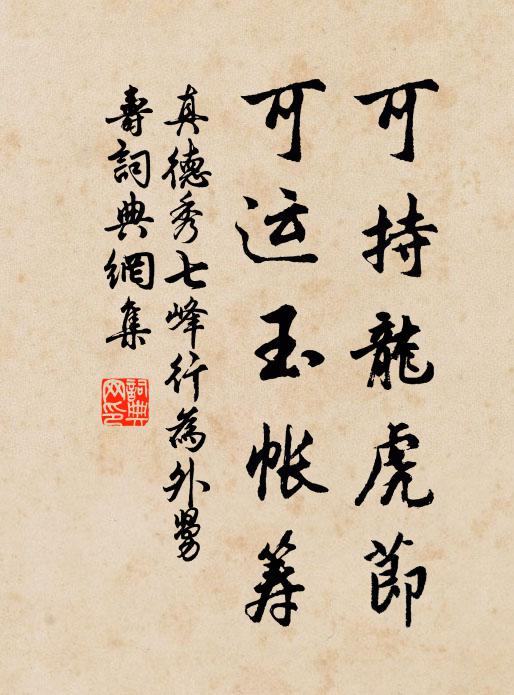 可持龍虎節
可运玉帐筹
真德秀七峰行為外舅
壽詞典網集
詞典网印